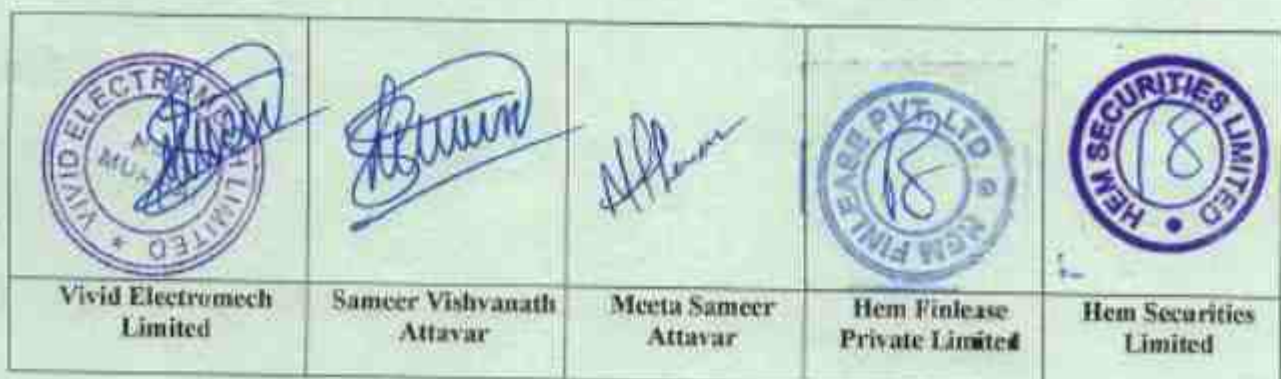 VIVID ELECTROMECH LIMITED
HEM FINLEASE PVT. LTD
HEM SECURITIES LIMITED
Vivid Electromech
Limited
Sameer Vishvanath
Attavar
Meeta Sameer
Attavar
Hem Finlease
Private Limited
Hem Securities
Limited